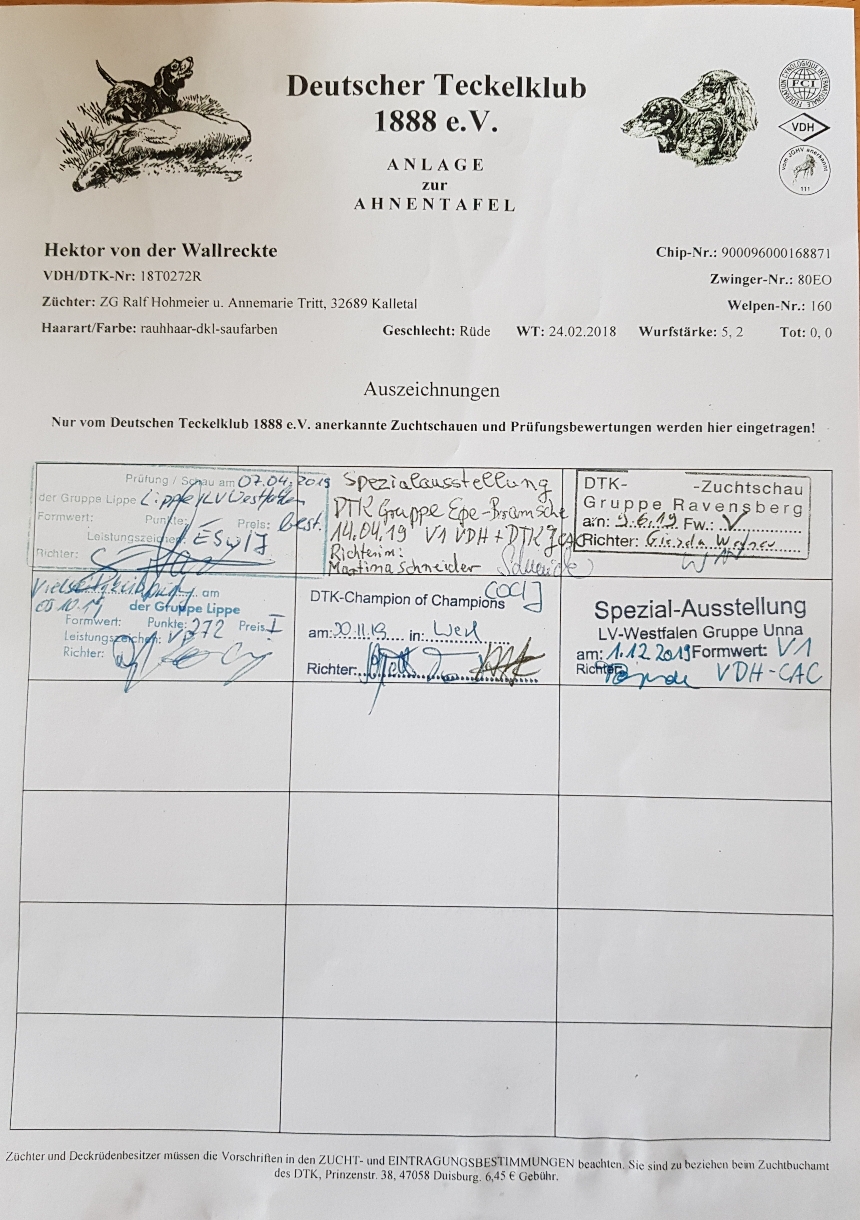 Deutscher Teckelklub
1888 e.V.
ANLAGE
zur
AHNENTAFEL
FEDERATION CYNOLOGIQUE INTERNATIONALE
F.C.I.
VDH
vom JGHV anerkannt
111
Hektor von der Wallreckte
Chip-Nr.: 900096000168871
VDH/DTK-Nr: 18T0272R
Zwinger-Nr.: 80EO
Züchter: ZG Ralf Hohmeier u. Annemarie Tritt, 32689 Kalletal
Welpen-Nr.: 160
Haarart/Farbe: rauhhaar-dkl-saufarben Geschlecht: Rüde WT: 24.02.2018 Wurfstärke: 5, 2 Tot: 0, 0
Auszeichnungen
Nur vom Deutschen Teckelklub 1888 e.V. anerkannte Zuchtschauen und Prüfungsbewertungen werden hier eingetragen!
Prüfung / Schau am 07.04.2019
der Gruppe Lippe Lippe / LV Westfalen
Formwert: Punkte: Preis: best.
Leistungszeichen: ESwIJ
Richter:
Spezialausstellung
DTK Gruppe Epe-Bramsche
14.04.19 V1 VDH + DTK JCAC
Richterin:
Martina Schneider
DTK- -Zuchtschau
Gruppe Ravensberg
am: 9.6.19 Fw.: V
Richter:
Vielseitigkeitsprüfung am
der Gruppe Lippe
Formwert: Punkte: 272 Preis: I
Leistungszeichen: Vp
Richter:
DTK-Champion of Champions COCJ
am: 30.11.19 in: Werl
Richter:
Spezial-Ausstellung
LV-Westfalen Gruppe Unna
am: 1.12.2019 Formwert: V1
Richter: VDH-CAC
Züchter und Deckrüdenbesitzer müssen die Vorschriften in den ZUCHT- und EINTRAGUNGSBESTIMMUNGEN beachten. Sie sind zu beziehen beim Zuchtbuchamt
des DTK, Prinzenstr. 38, 47058 Duisburg. 6,45 € Gebühr.